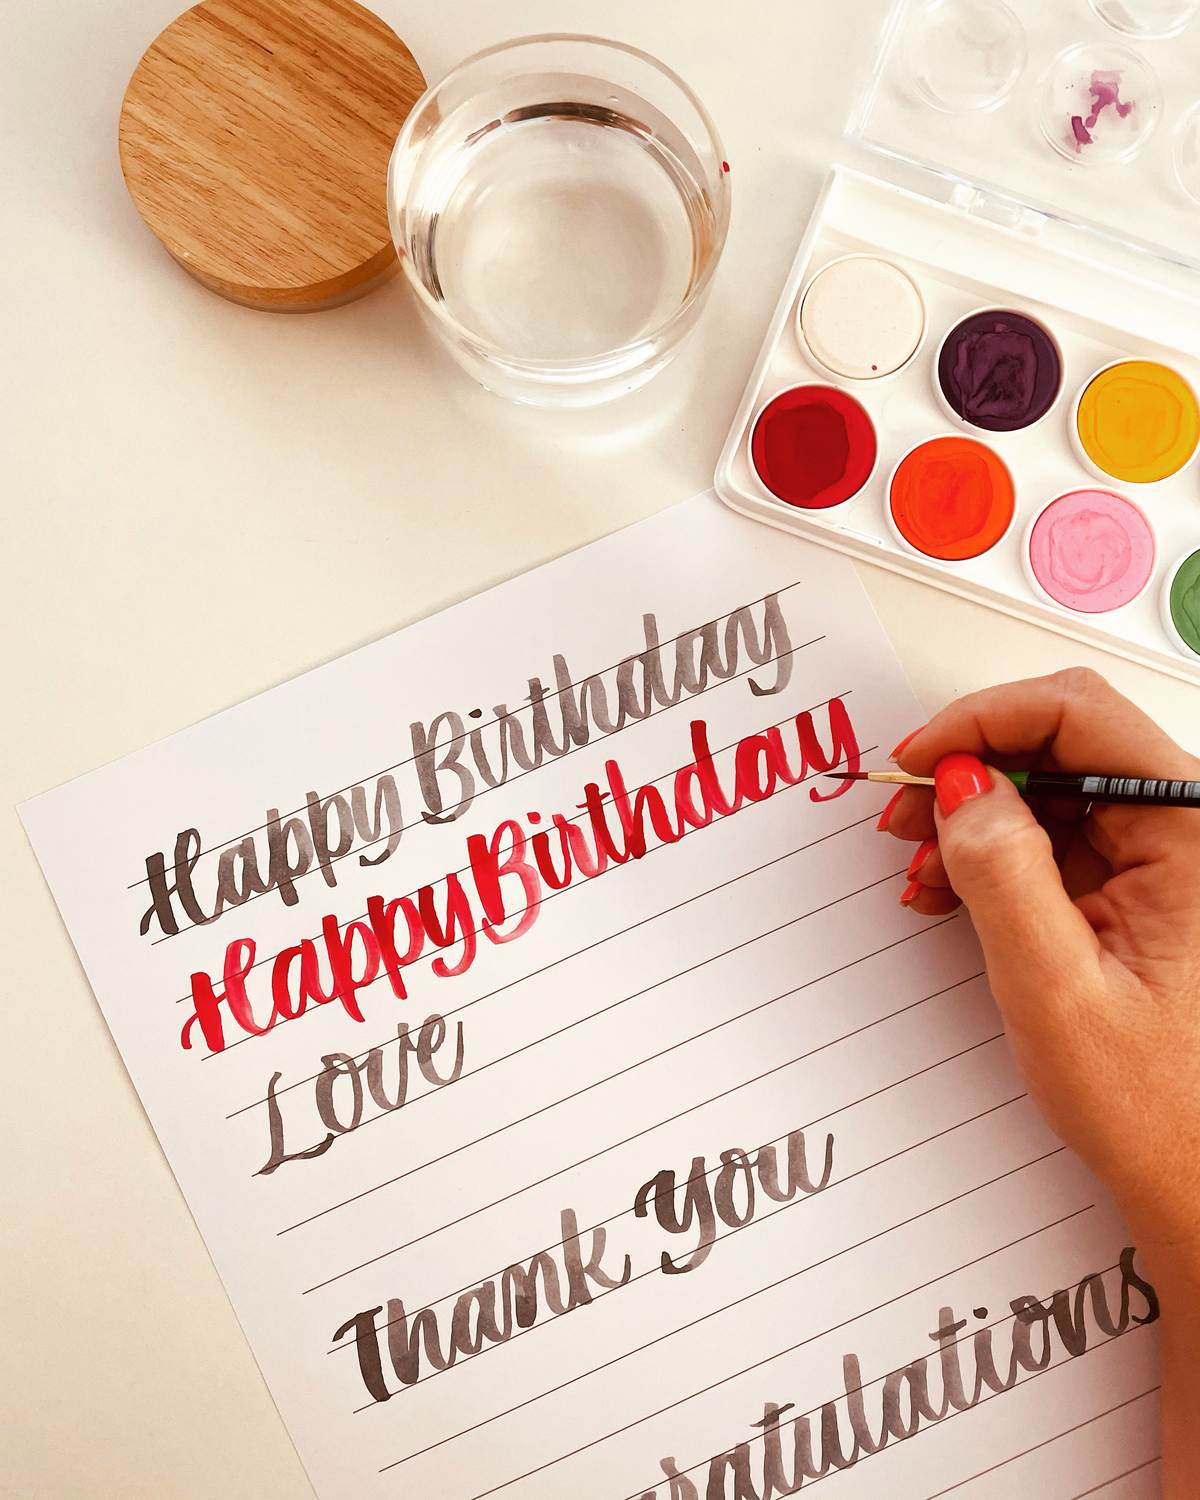 Happy Birthday
Happy Birthday
Love
Thank you
ratulations